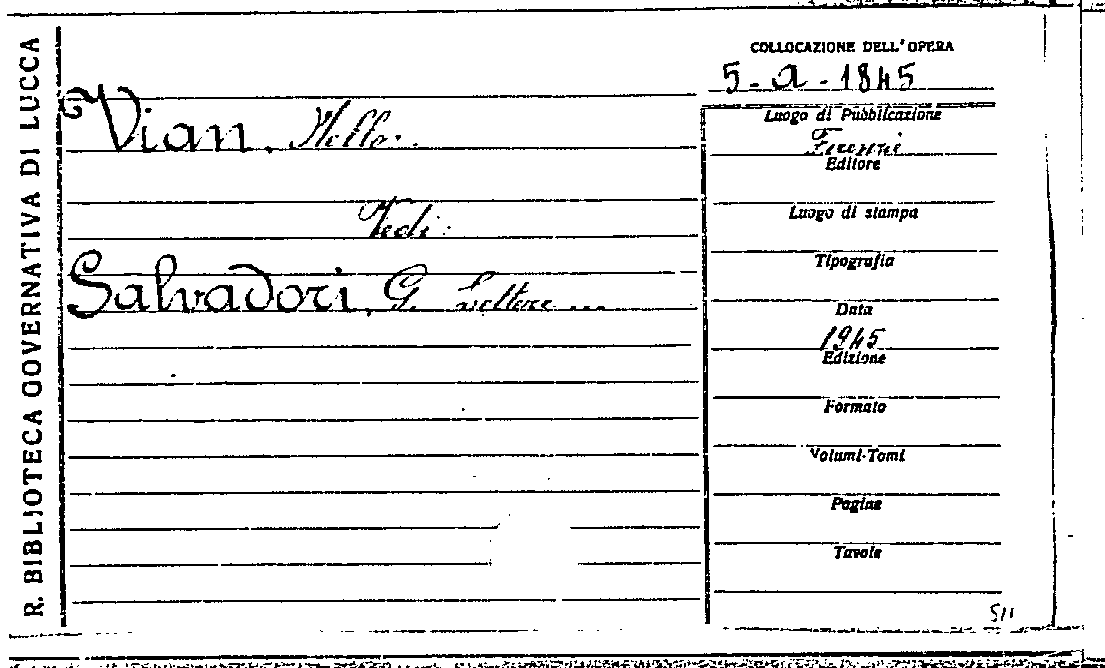 R. BIBLIOTECA GOVERNATIVA DI LUCCA
COLLOCAZIONE DELL'OPERA
5-a-1845
Vian, Nello.
Vedi:
Salvadori, G. Lettere ...
Luogo di Pubblicazione
Firenze
Editore
Luogo di stampa
Tipografia
Data
1945
Edizione
Formato
Volumi-Tomi
Pagine
Tavole
511